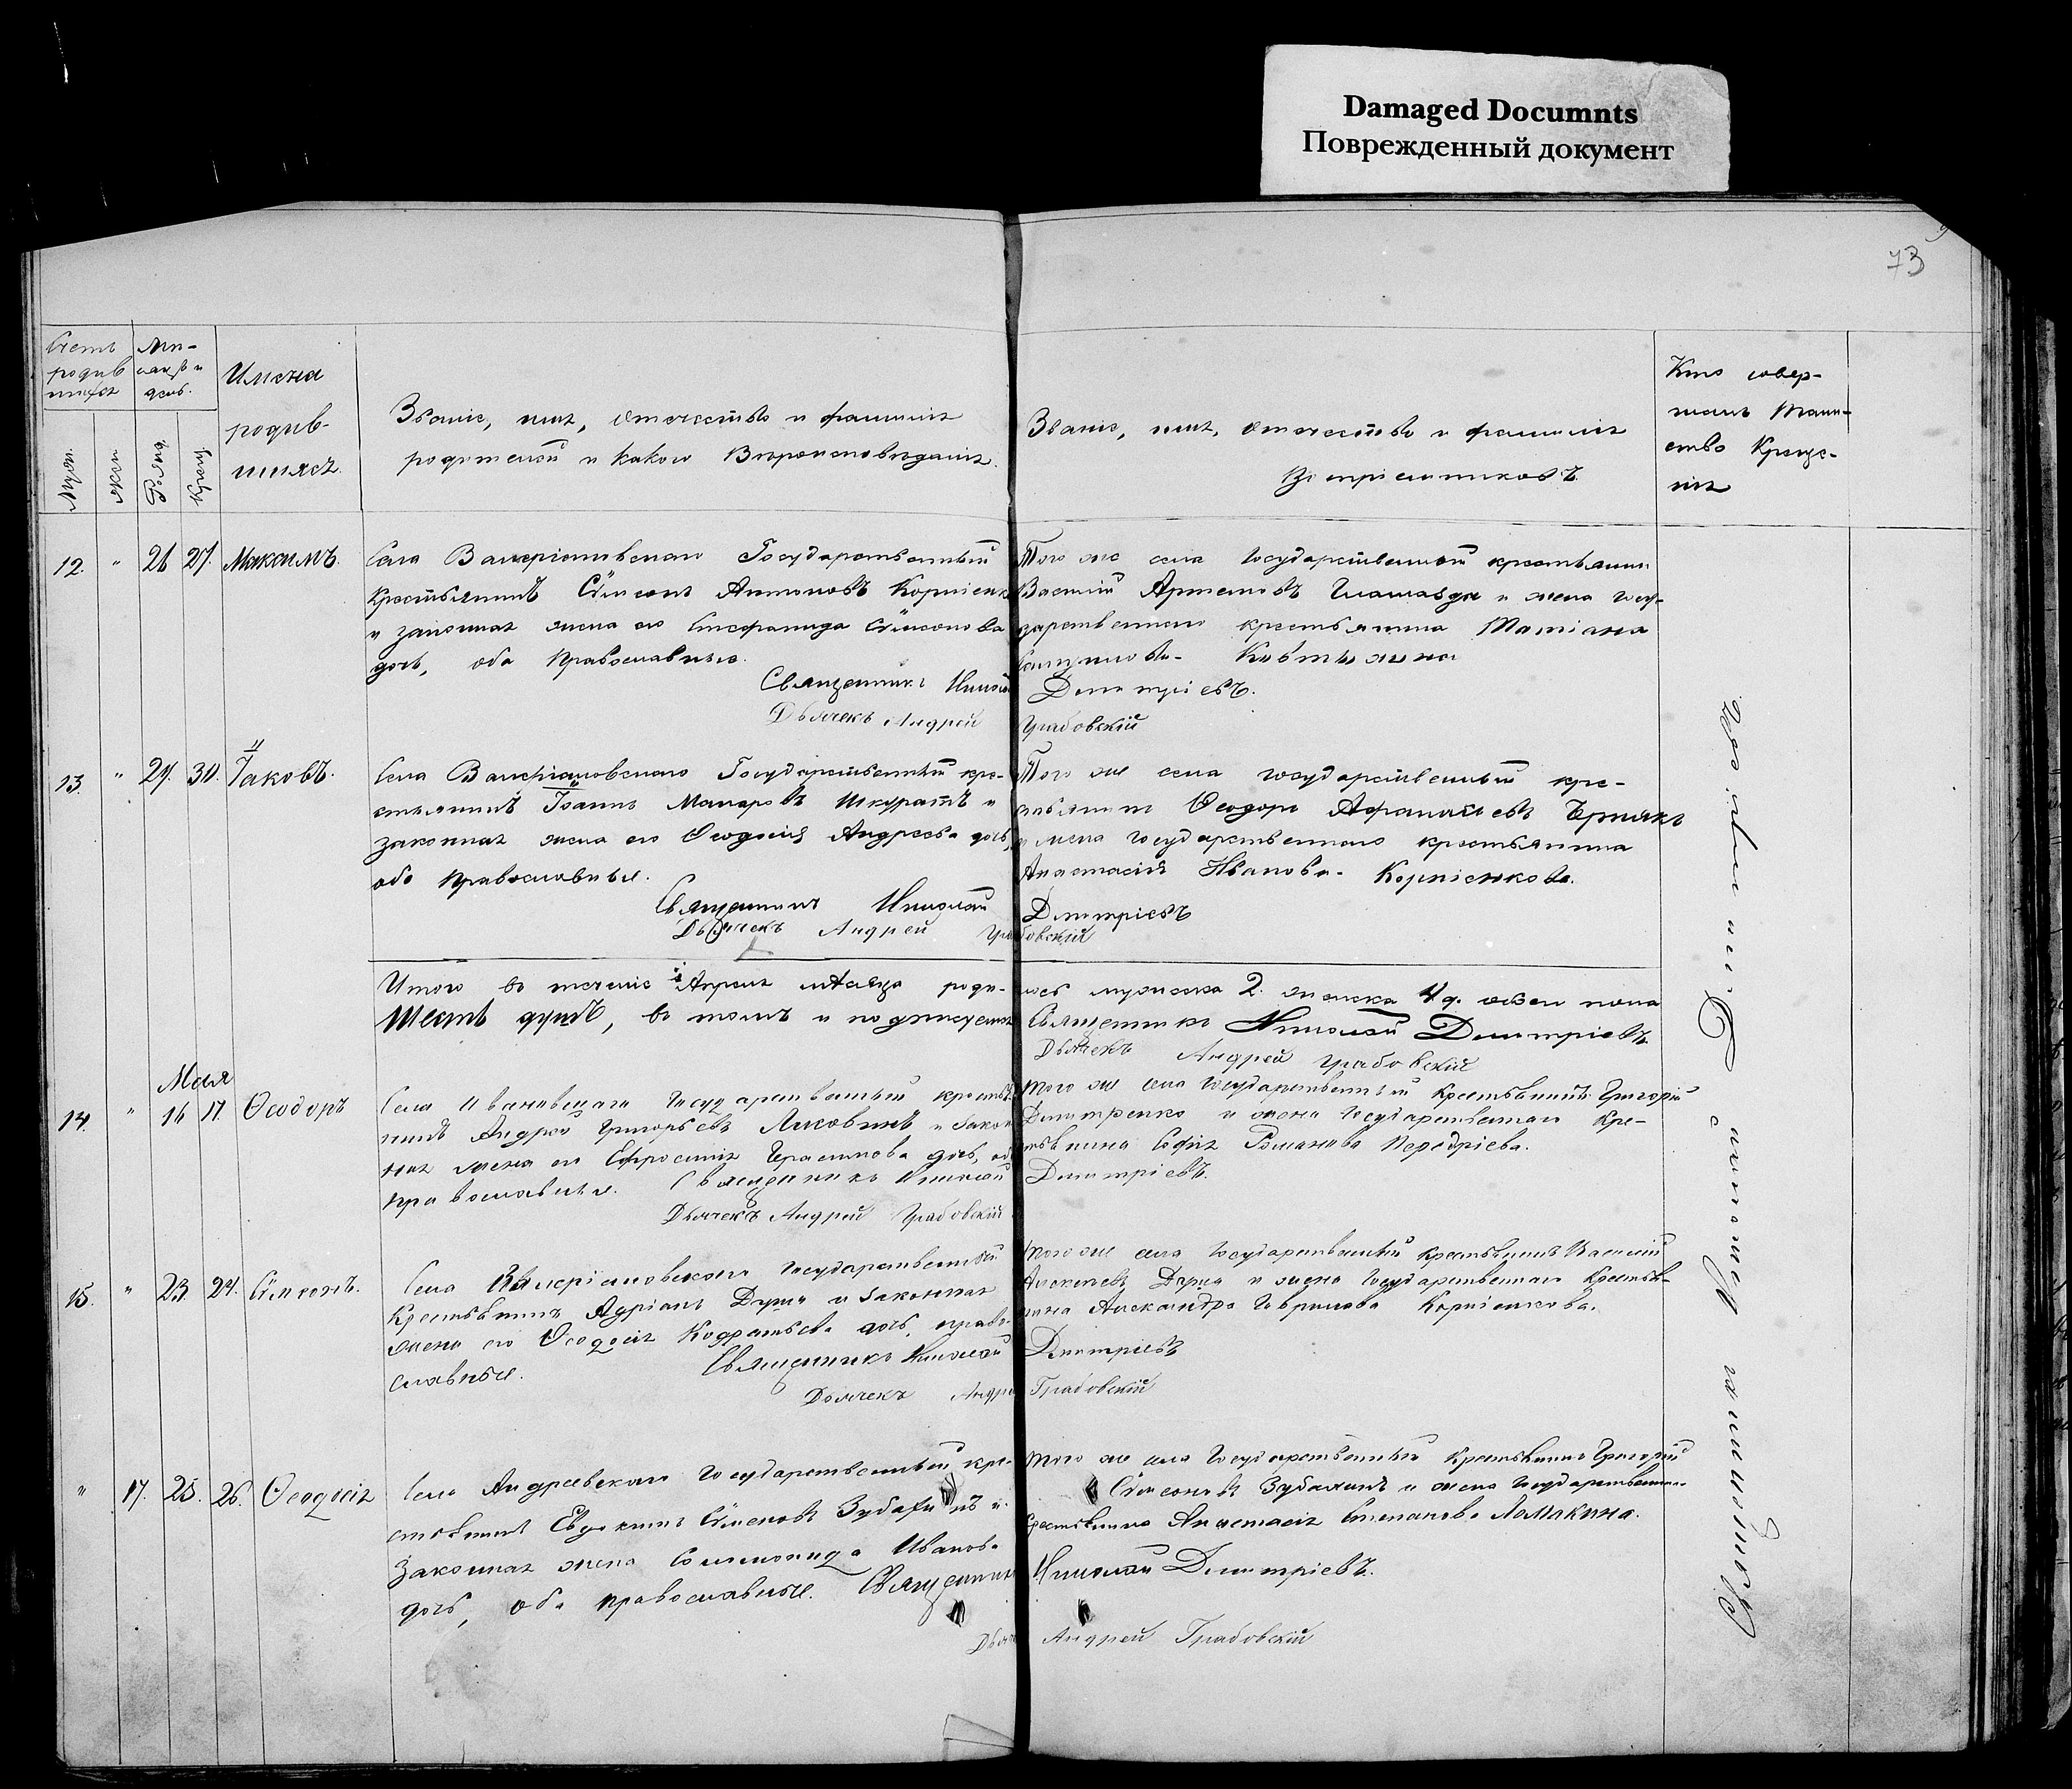 Damaged Documnts
Поврежденный документ
73
Счетъ родив шихся
Мѣ- сяцъ и день.
Имена родив- шихся.
Званіе, имя, отечество и фамилія
родителей и какого Вѣроисповѣданія.
Званіе, имя, отечество и фамилія
Воспріемниковъ.
Кто совер-
шалъ Таин-
ство Креще-
нія
Муж.
Жен
Рожд.
Крещ.
12. " 26 27. Максимъ.
Села Валеріановскаго Государственный
крестьянинъ Сѵмеонъ Антоновъ Корніенко
и законная жена его Стефанида Сѵмеонова
дочь, оба Православные.
Священникъ Николай Димитріевъ.
Дьячекъ Андрей Грабовскій
Того же села Государственный крестьянинъ
Василій Артемовъ и жена Госу-
дарственнаго крестьянина Татіана
13. " 29. 30. Іаковъ.
Села Валеріановскаго Государственный кре-
стьянинъ Іоаннъ Макаровъ Шкуратъ и
законная жена его Ѳеодосія Андреева дочь,
оба Православные.
Священникъ Николай Димитріевъ
Дьячекъ Андрей Грабовскій
Того же села государственный кре-
стьянинъ Ѳеодоръ Афанасіевъ Ермакъ
и жена государственнаго крестьянина
Анастасія Иванова Корніенкова.
Итого въ теченіе Апреля мѣсяца роди-
лось мужеска 2. женска 4 д. обоего пола
Шесть душъ, въ томъ и подписуемся
Священникъ Николай Димитріевъ.
Дьячекъ Андрей Грабовскій
Мая
14. " 16 17. Ѳеодоръ
Села Ивановскаго Государственный крестья-
нинъ Андрей Григорьевъ Лиховинъ и закон-
ная жена его Ефросинія Герасимова дочь, оба
православные. Священникъ Николай Димитріевъ.
Дьячекъ Андрей Грабовскій
Того же села Государственный Крестьянинъ Григорій
Димитренко и жена Государственнаго Кре-
стьянина Софія Романова
15. " 23. 24. Сѵмеонъ.
Села Валеріановскаго Государственный
Крестьянинъ Адріанъ Дума и законная
жена его Ѳеодосія Кодратьева дочь, право-
славные. Священникъ Николай Димитріевъ
Дьячекъ Андрей Грабовскій
Того же села Государственный крестьянинъ Василій
Алексѣевъ Дума и жена Государственнаго Крестья-
нина Александра Гаврилова Корніенкова.
" 17. 25. 26. Ѳеодосія
Села Андреевскаго Государственный кре-
стьянинъ Евдокимъ Сѵмеоновъ Зубахинъ и
Законная жена Соломонида Иванова
дочь, оба православные. Священникъ Николай Димитріевъ.
Дьячекъ Андрей Грабовскій
Того же села Государственный Крестьянинъ Григорій
Сѵмеоновъ Зубахинъ и жена Государственнаго
Крестьянина Анастасія Степанова Ломакина.